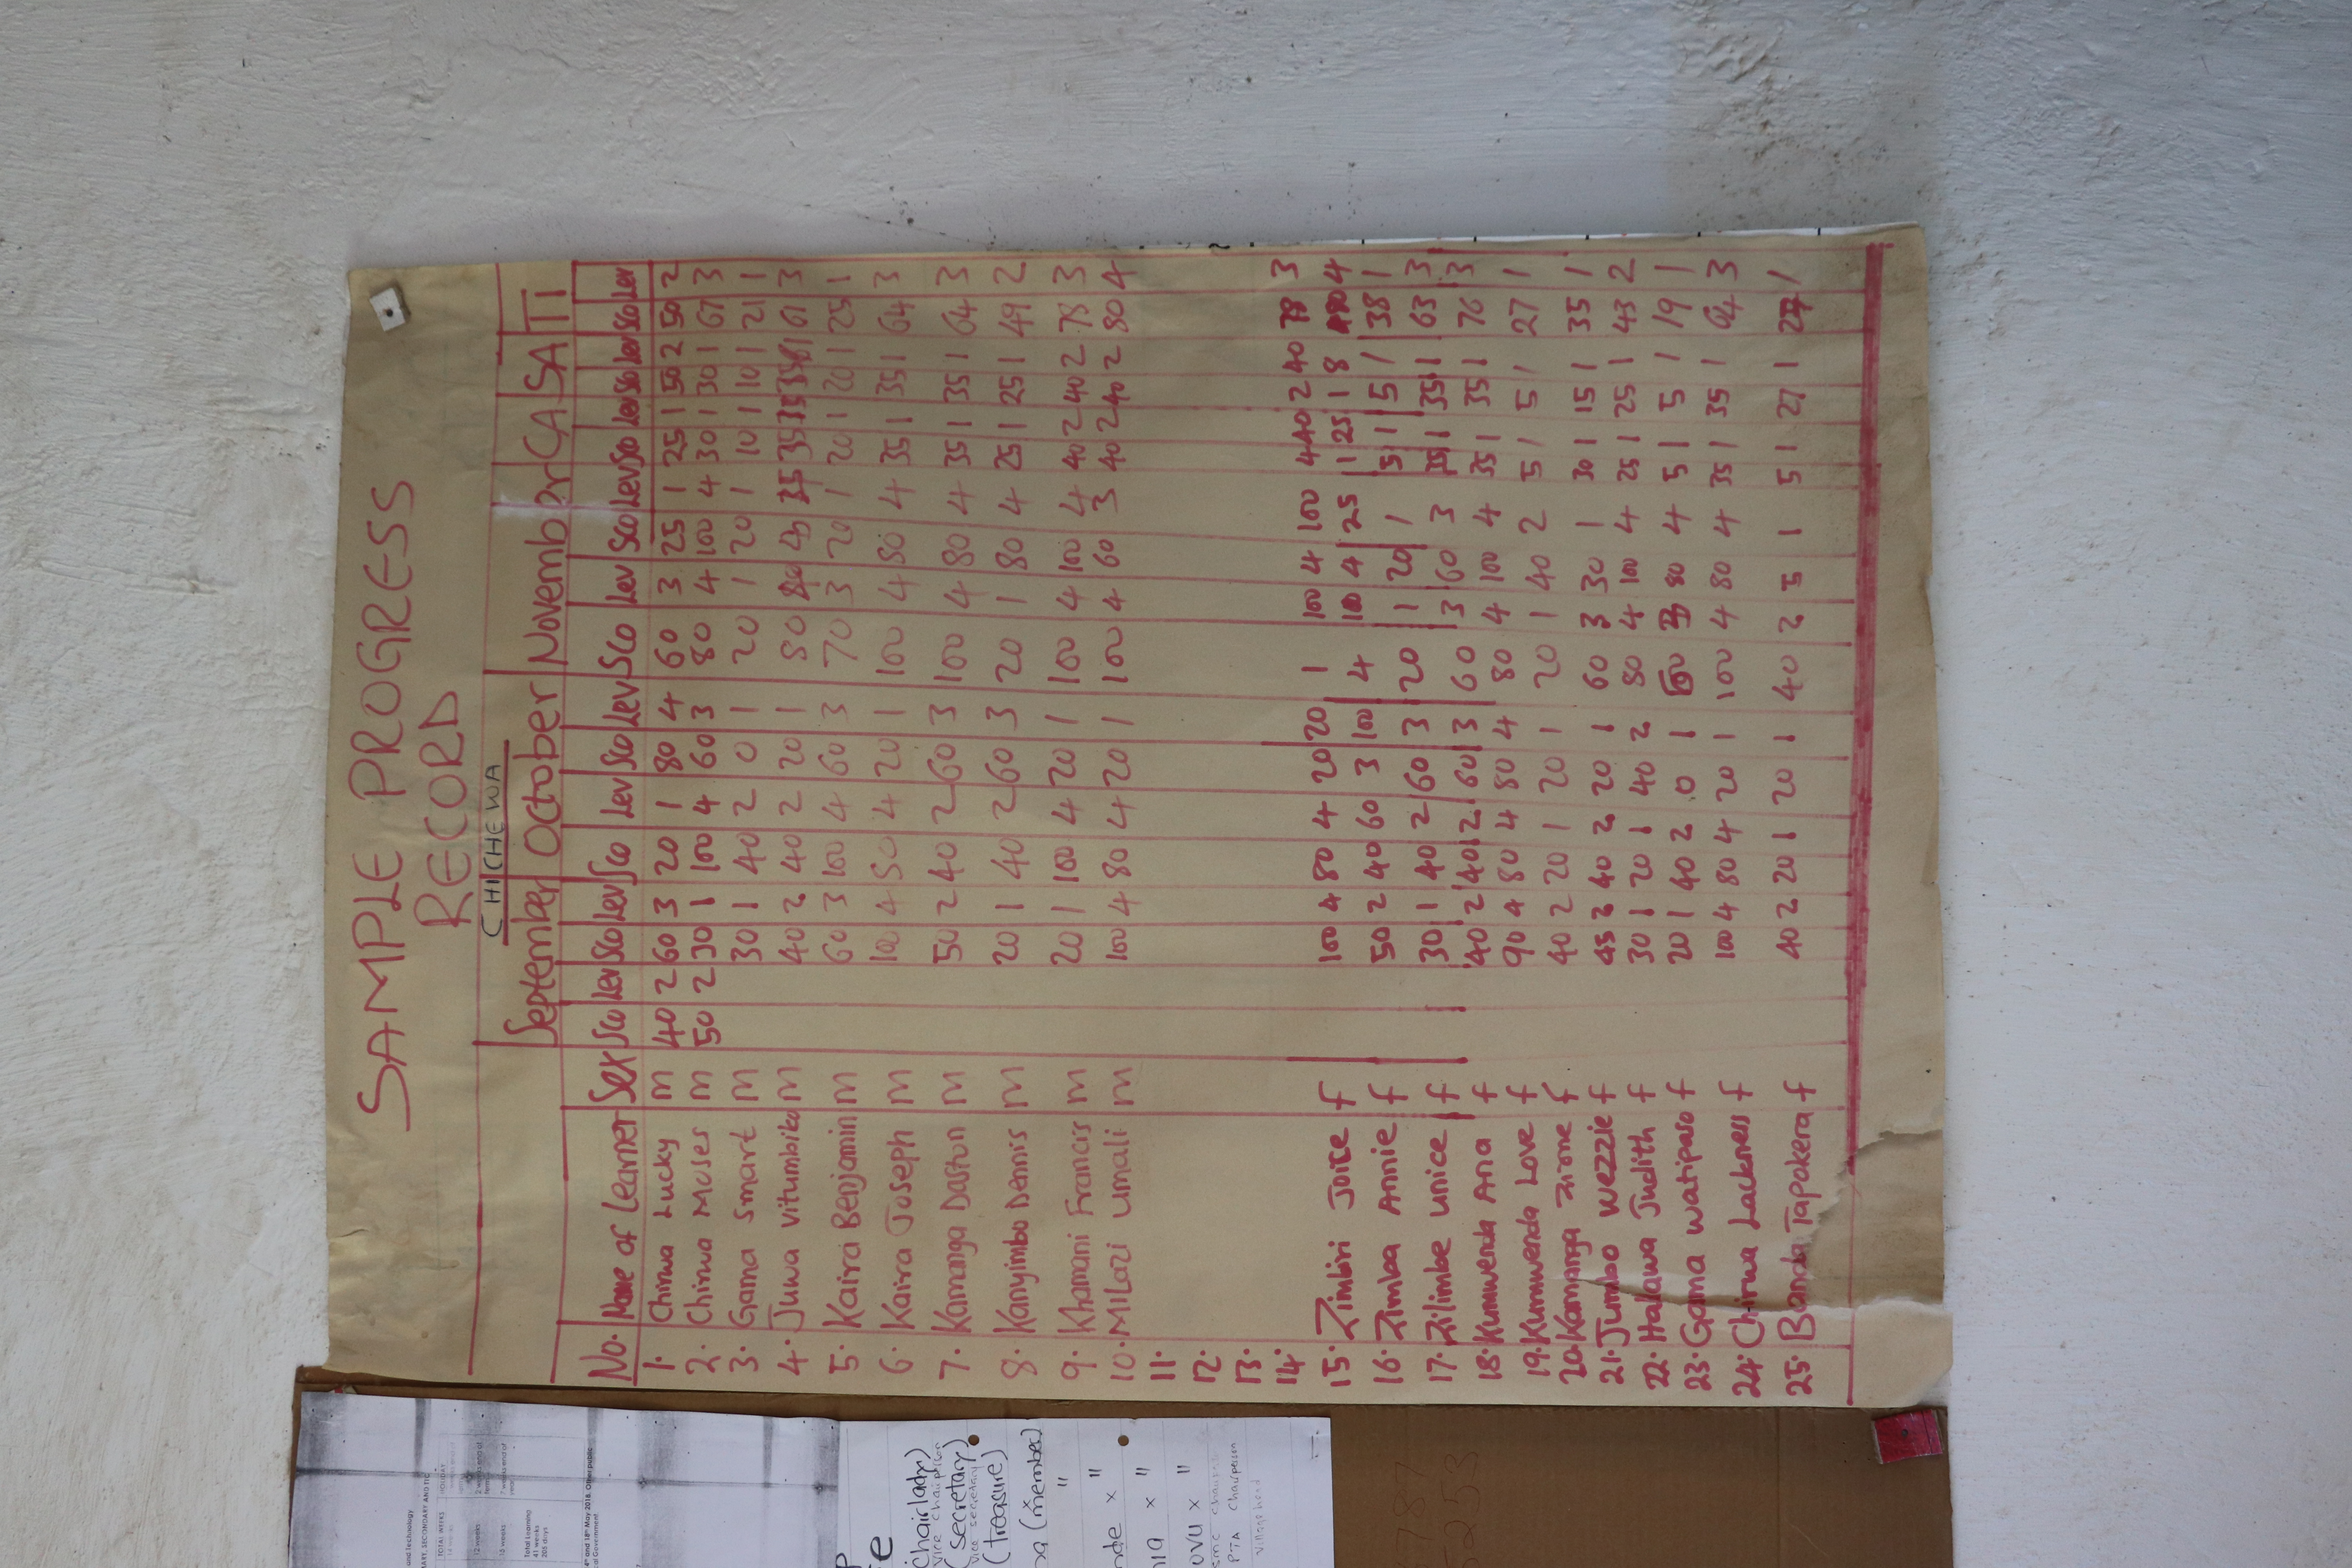 SAMPLE PROGRESS
RECORD
CHICHEWA
September October November CA SA TT
No. Name of Learner Sex Sco Lev Sco Lev Sco Lev Sco Lev Sco Lev Sco Lev Sco Lev Sco Lev Sco Lev
1. Chirwa Lucky m 40 2 60 3 20 1 80 4 60 3 25 1 25 1 50 2 50 2
2. Chirwa Moses m 50 2 30 1 100 4 60 3 80 4 100 4 30 1 30 1 67 3
3. Gama Smart m 30 1 40 2 0 1 20 1 20 1 10 1 10 1 21 1
4. Juwa Vitumbiko m 40 2 40 2 20 1 80 35 61 3
5. Kaira Benjamin m 60 3 100 4 60 3 70 3 20 1 20 1 20 1 25 1
6. Kaira Joseph m 100 4 50 4 20 1 100 4 80 4 35 1 35 1 64 3
7. Kamanga Daston m 50 2 40 2 60 3 100 4 80 4 35 1 35 1 64 3
8. Kanyimbo Dennis m 20 1 40 2 60 3 20 1 80 4 25 1 25 1 49 2
9. Khamani Francis m 20 1 100 4 20 1 100 4 100 4 40 2 40 2 78 3
10. Milazi Umali m 100 4 80 4 20 1 100 4 60 3 40 2 40 2 80 4
11.
12.
13.
14.
15. Zimbiri Joice f 100 4 80 4 20 20 1 100 4 100 4 40 2 40 78 3
16. Zimba Annie f 50 2 40 60 3 100 4 100 4 25 1 25 1 8 4
17. Zilimbe Unice f 30 1 40 2 60 3 20 1 20 1 5 1 5 1 38 1
18. Kumwenda Ana f 40 2 40 2 60 3 60 3 60 3 35 1 35 1 63 3
19. Kumwenda Love f 90 4 80 4 80 4 80 4 100 4 35 1 35 1 76 3
20. Kamanga Zione f 40 2 20 1 20 1 20 1 40 2 5 1 5 1 27 1
21. Jumbo Wezzie f 45 2 40 2 20 1 60 3 30 1 30 1 15 1 35 1
22. Halawa Judith f 30 1 20 1 40 2 80 4 100 4 25 1 25 1 43 2
23. Gama Watipaso f 20 1 40 2 0 1 80 4 5 1 5 1 19 1
24. Chirwa Lackness f 100 4 80 4 20 1 100 4 80 4 35 1 35 1 64 3
25. Banda Tapokera f 40 2 20 1 20 1 40 2 5 1 5 1 27 1 1
Chairlady)
Vice chairperson
(Secretary)
Vice secretary
(Treasure)
(member)
"
x "
x "
x "
PTA chairperson
Village head
and Technology
TOTAL WEEKS
HOLIDAY
12 weeks
Total Learning
41 weeks
205 days